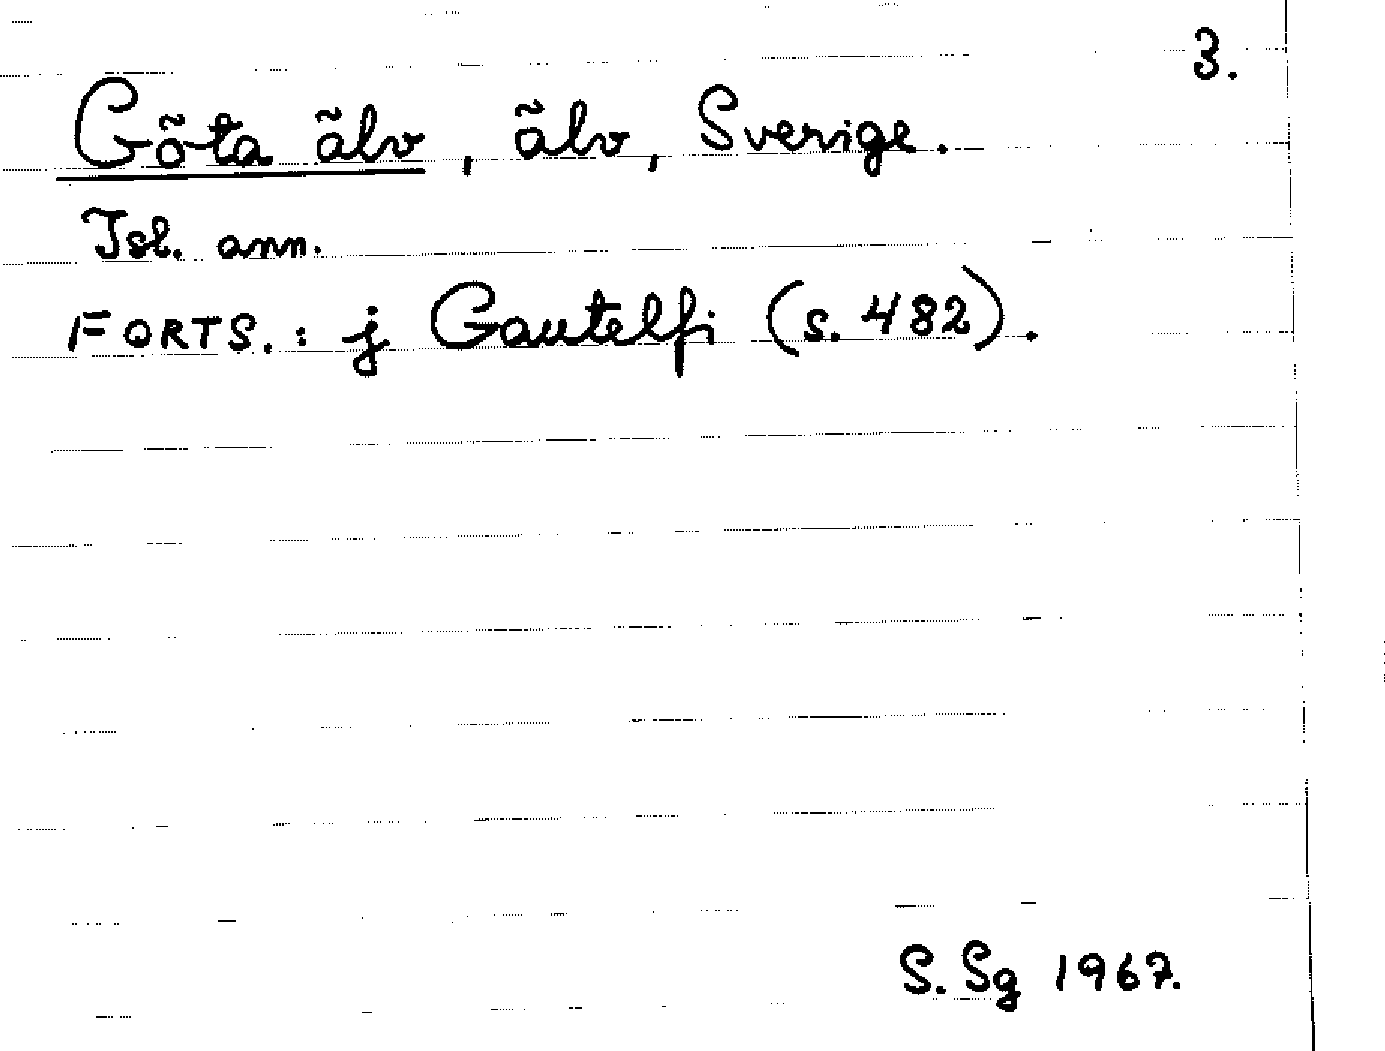 3.
Göta älv, älv, Sverige.
Isl. ann.
FORTS.: j Gautelfi (s. 482).
S. Sg 1967.